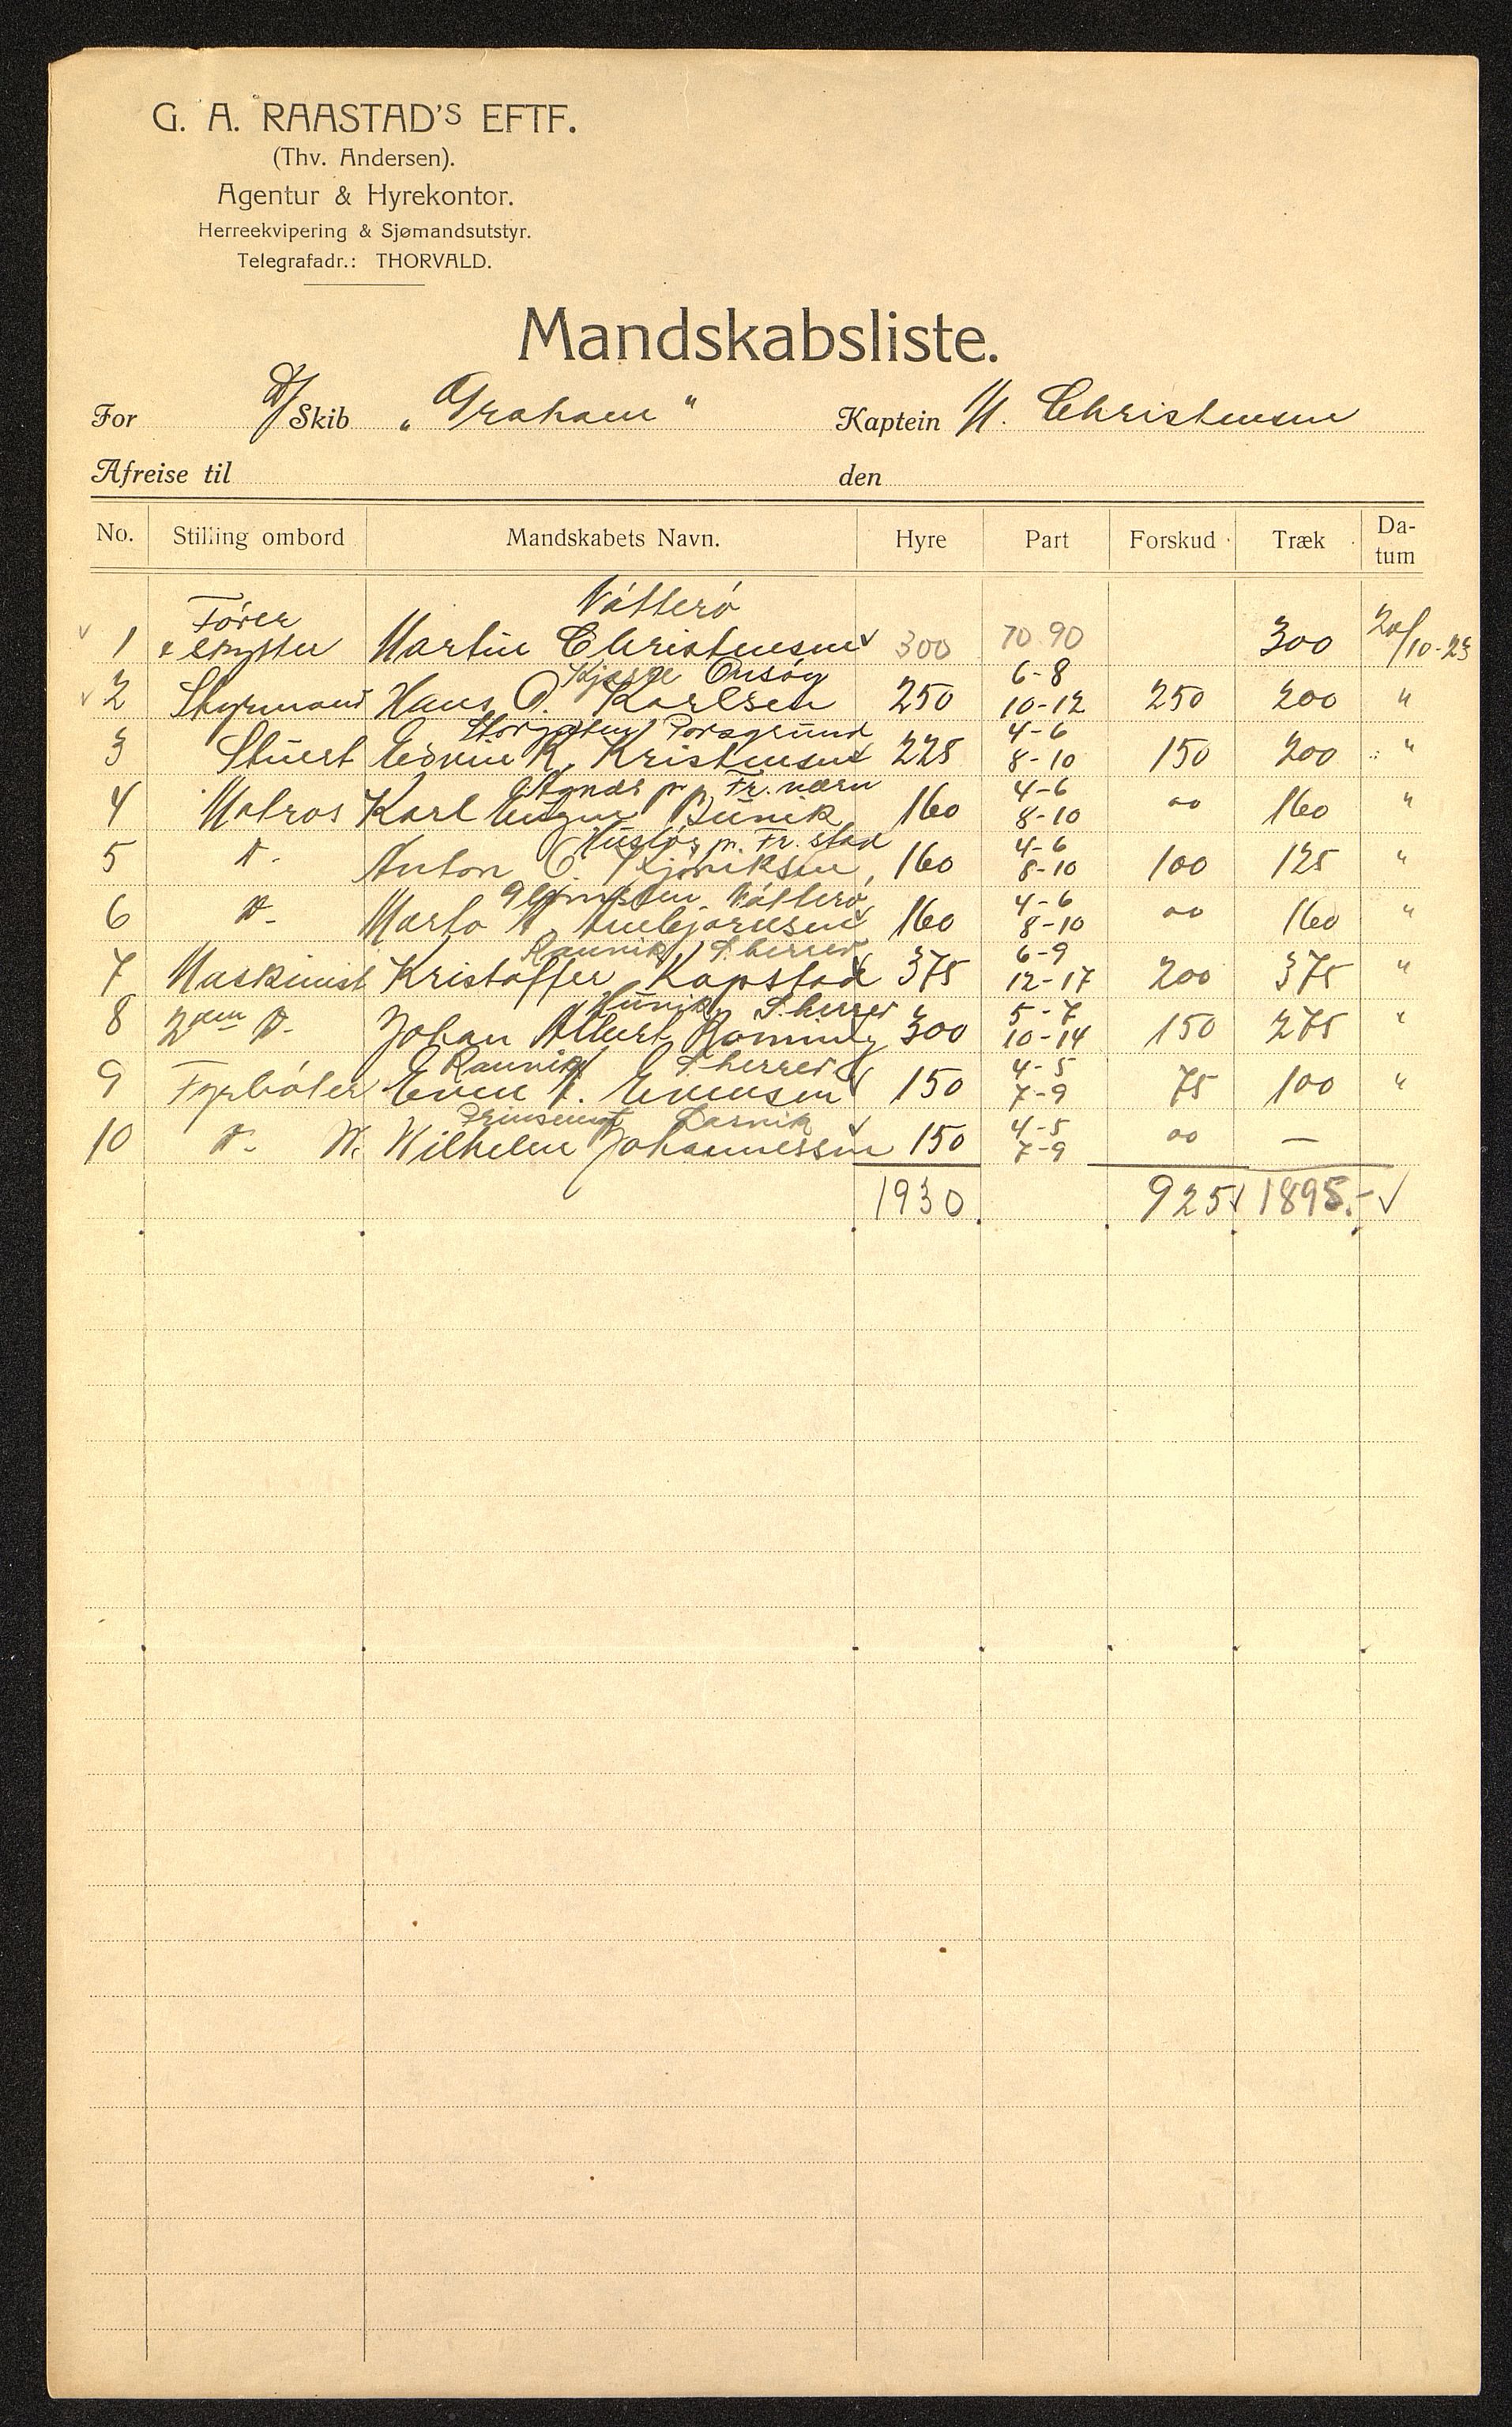 G. A. RAASTAD'S EFTF.
(Thv. Andersen).
Agentur & Hyrekontor.
Herreekvipering & Sjømandsutstyr.
Telegrafadr.: THORVALD.
Mandskabsliste.
For D/Skib „Graham" Kaptein M. Christensen
Afreise til den
No. Stilling ombord Mandskabets Navn. Hyre Part Forskud Træk Datum
Fører Nötterö
1 & skytter Martin Christensen 300 70 90 300 20/10-23
Onsöy 6-8
2 Styrmand Hans O. Karlsen 250 10-12 250 200 "
Storgaten Porsgrund 4-6
3 Stuert K. Kristensen 225 8-10 150 200 "
Agnes pr. Fr. værn 4-6
4 Matros Karl Bünik 160 8-10 00 160 "
pr. Fr. stad 4-6
5 D. Anton 160 8-10 100 125 "
Nötterö 4-6
6 D. 160 8-10 00 160 "
Raunik S. herred 6-9
7 Maskinist Kristoffer Kapstad 375 12-17 200 375 "
S. herred 5-7
8 2den D. Johan Albert Ronning 300 10-14 150 275 "
Raunik S. herred 4-5
9 Fyrböter Even Evensen 150 7-9 75 100 "
Prinsensgt Larvik 4-5
10 D. W. Wilhelm Johannessen 150 7-9 00 —
1930 925 1895.-